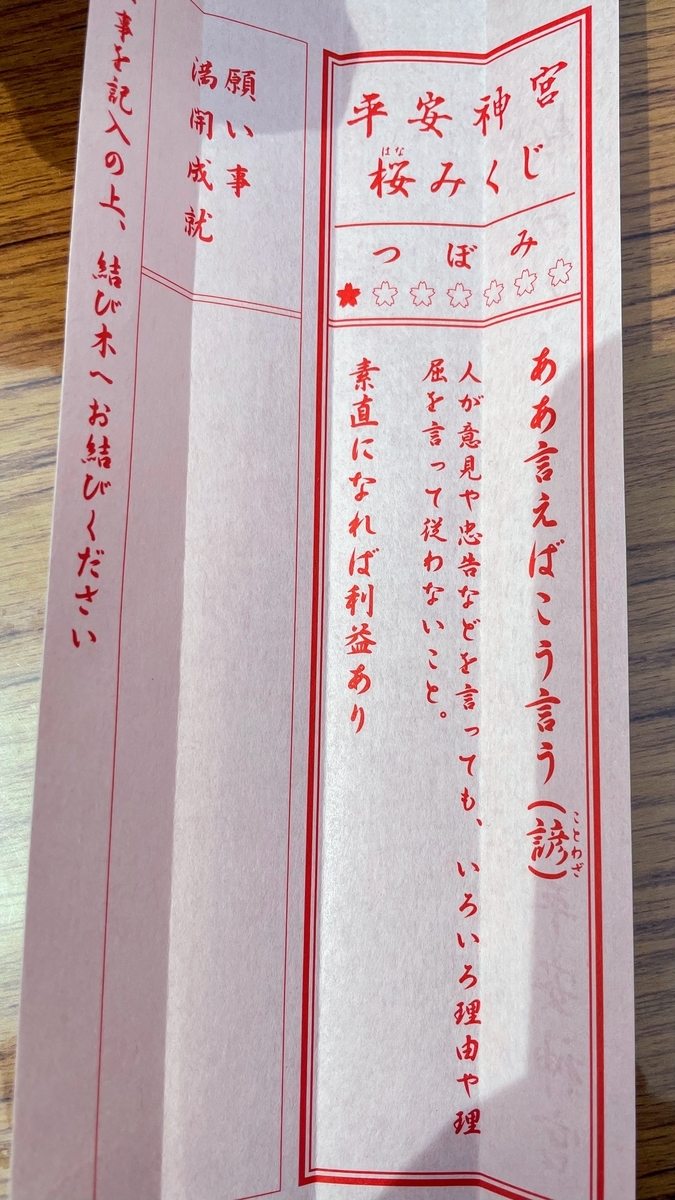 平安神宮
桜みくじ
はな
つぼみ
ああ言えばこう言う(諺)
ことわざ
人が意見や忠告などを言っても、いろいろ理由や理
屈を言って従わないこと。
素直になれば利益あり
願い事
満開成就
事を記入の上、結び木へお結びください